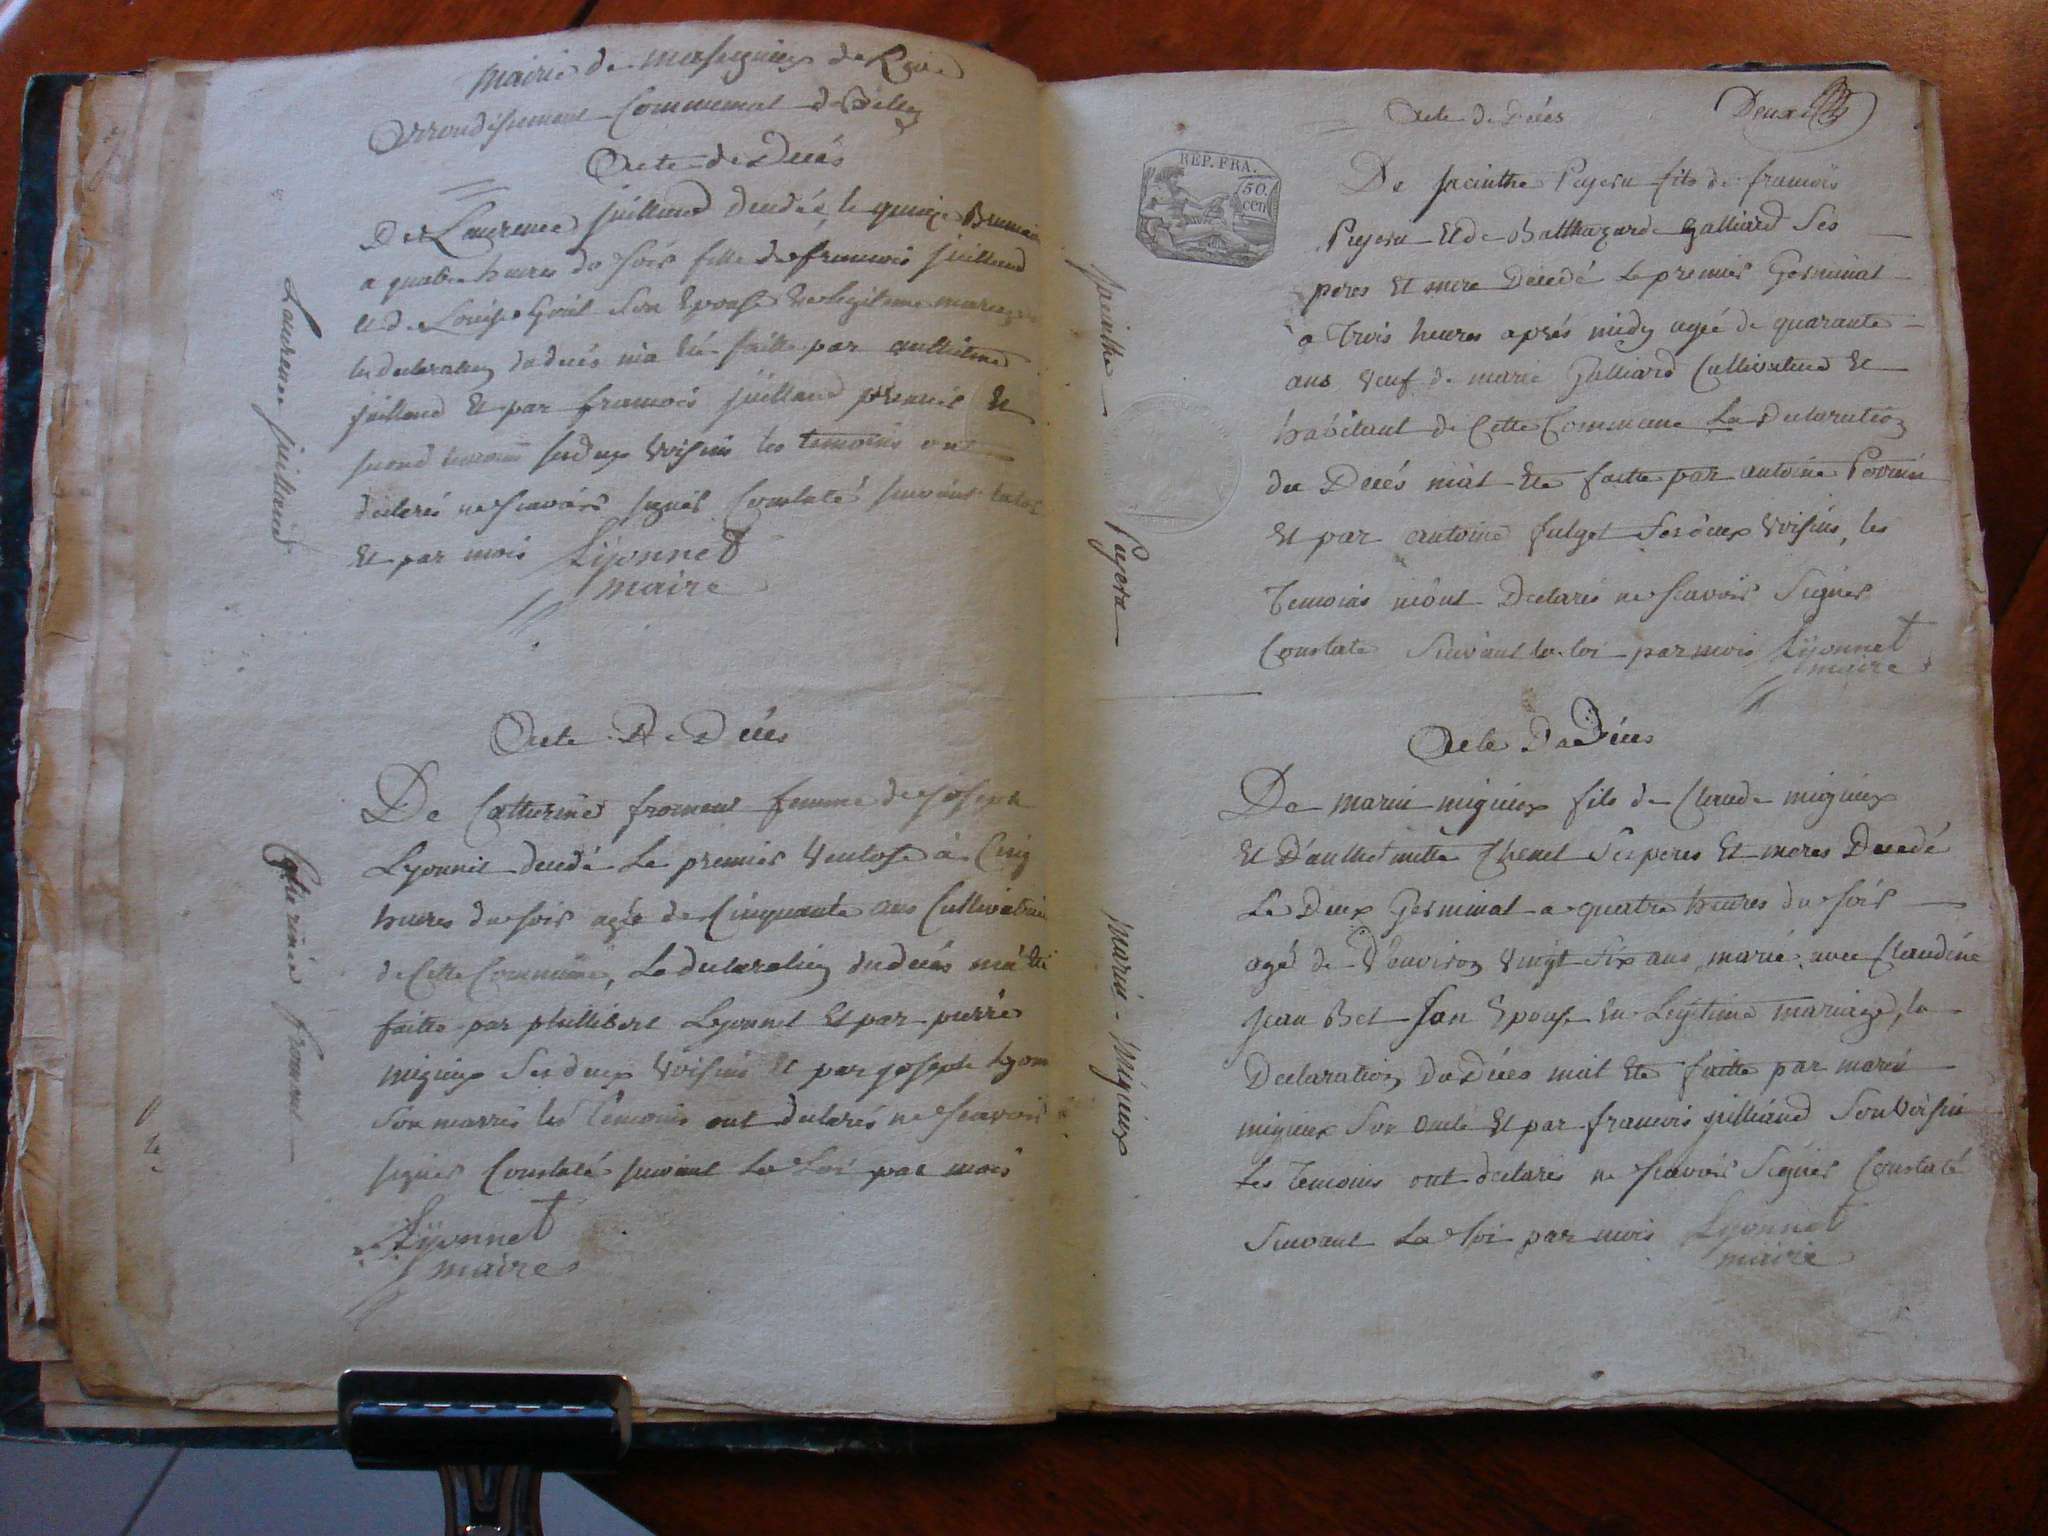 Mairie de Massignieu de Rive
Arrondissement Communal de Belley
Acte de Decés
De Laurence juilland decedé, le quinze Brumaire
a quatre heures du soir fille de francois juilland
et de Louise Son Epouse en legitime mariage
la declaration du decés ma été faitte par anthelme
juilland Et par francois juilland premier Et
second ses deux voisins les temoins ont
declarés ne scavoir signer Constaté suivant la loi
Et par moi Lyonnet
maire
Laurence juilland
Acte De Decés
De Catherine froment femme de joseph
Lyonnet decedé Le premier Ventose à Cinq
heures du soir agée de Cinquante ans Cultivatrice
de Cette Commune, La declaration du decés ma été
faitte par phillibert Lyonnet Et par pierre
migieux Ses deux voisins Et par joseph Lyonnet
Son marris les temoins ont declarés ne scavoir
signer Constaté suivant La Loi par moi
Lyonnet
maire
Catherine froment
Acte de Decés
Deux
REP. FRA.
50
cen
De jacinthe Pugera fils de francois
Pugera Et de Balthazarde galliard Ses
peres Et mere Decedé Le premier Germinal
a Trois heures aprés midy agée de quarante
ans veuf de marie Galliard Cultivateur Et
habitant de Cette Commune La Declaration
du Decés m'at Eté faitte par antoine
Et par antoine fulget Ses deux voisins, les
Temoins m'ont Declarés ne scavoir Signer
Constaté Suivant la loi par moi Lyonnet
maire
jacinthe Pugera
Acte De Décés
De marin migieux fils de Claude migieux
Et D'anthelmette thenet Ses peres Et meres Decedé
Le Deux Germinal a quatre heures du soir
agé de D'environ vingt Six ans, marié avec Claudine
jean Bet Son Epouse en Legitime mariage, la
Declaration Du Décés m'at Eté faitte par marin
migieux Son oncle Et par francois juilliand Son voisin
Les Temoins ont declarés ne scavoir Signer Constaté
Suivant La Loi par moi Lyonnet
maire
marin migieux